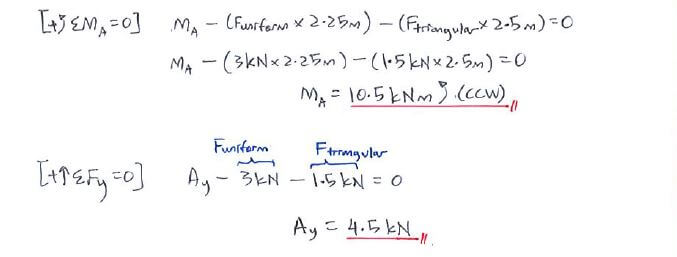 [+↺ ΣM_A = 0] M_A - (Funiform × 2.25m) - (Ftriangular × 2.5m) = 0
M_A - (3kN × 2.25m) - (1.5kN × 2.5m) = 0
M_A = 10.5 kNm ↺ (CCW)
Funiform Ftriangular
[+↑ΣFy = 0] Ay - 3kN - 1.5kN = 0
Ay = 4.5 kN